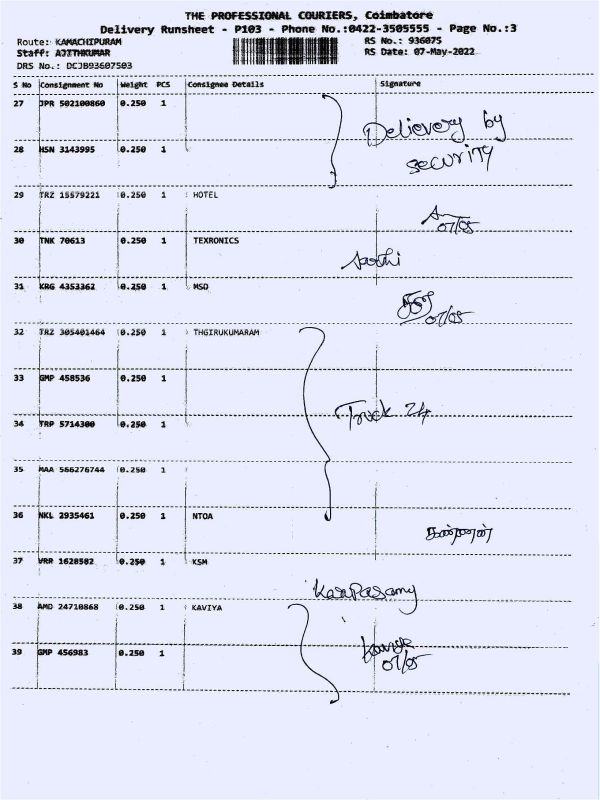 THE PROFESSIONAL COURIERS, Coimbatore
Delivery Runsheet - P103 - Phone No.:0422-3505555 - Page No.:3
Route: KAMACHIPURAM RS No.: 936075
Staff: AJITHKUMAR RS Date: 07-May-2022
DRS No.: DCJB93607503
S No Consignment No Weight PCS Consignee Details Signature
27 JPR 502100860 0.250 1
Delievery by
28 HSN 3143995 0.250 1
security
29 TRZ 15579221 0.250 1 HOTEL
07/05
30 TNK 70613 0.250 1 TEXRONICS
31 KRG 4353362 0.250 1 MSD
07/05
32 TRZ 305401464 0.250 1 THGIRUKUMARAM
33 GMP 458536 0.250 1
Truck 24
34 TRP 5714300 0.250 1
35 MAA 566276744 0.250 1
36 NKL 2935461 0.250 1 NTOA
கண்ணன்
37 VRR 1628582 0.250 1 KSM
KaruPasamy
38 AMD 24710868 0.250 1 KAVIYA
39 GMP 456983 0.250 1
07/05